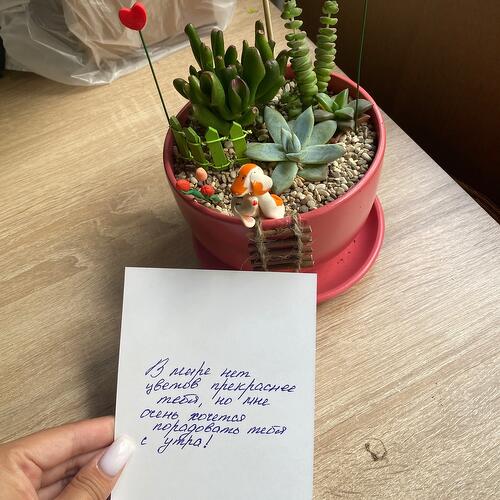 В мире нет
цветов прекраснее
тебя, но мне
очень хочется
порадовать тебя
с утра!